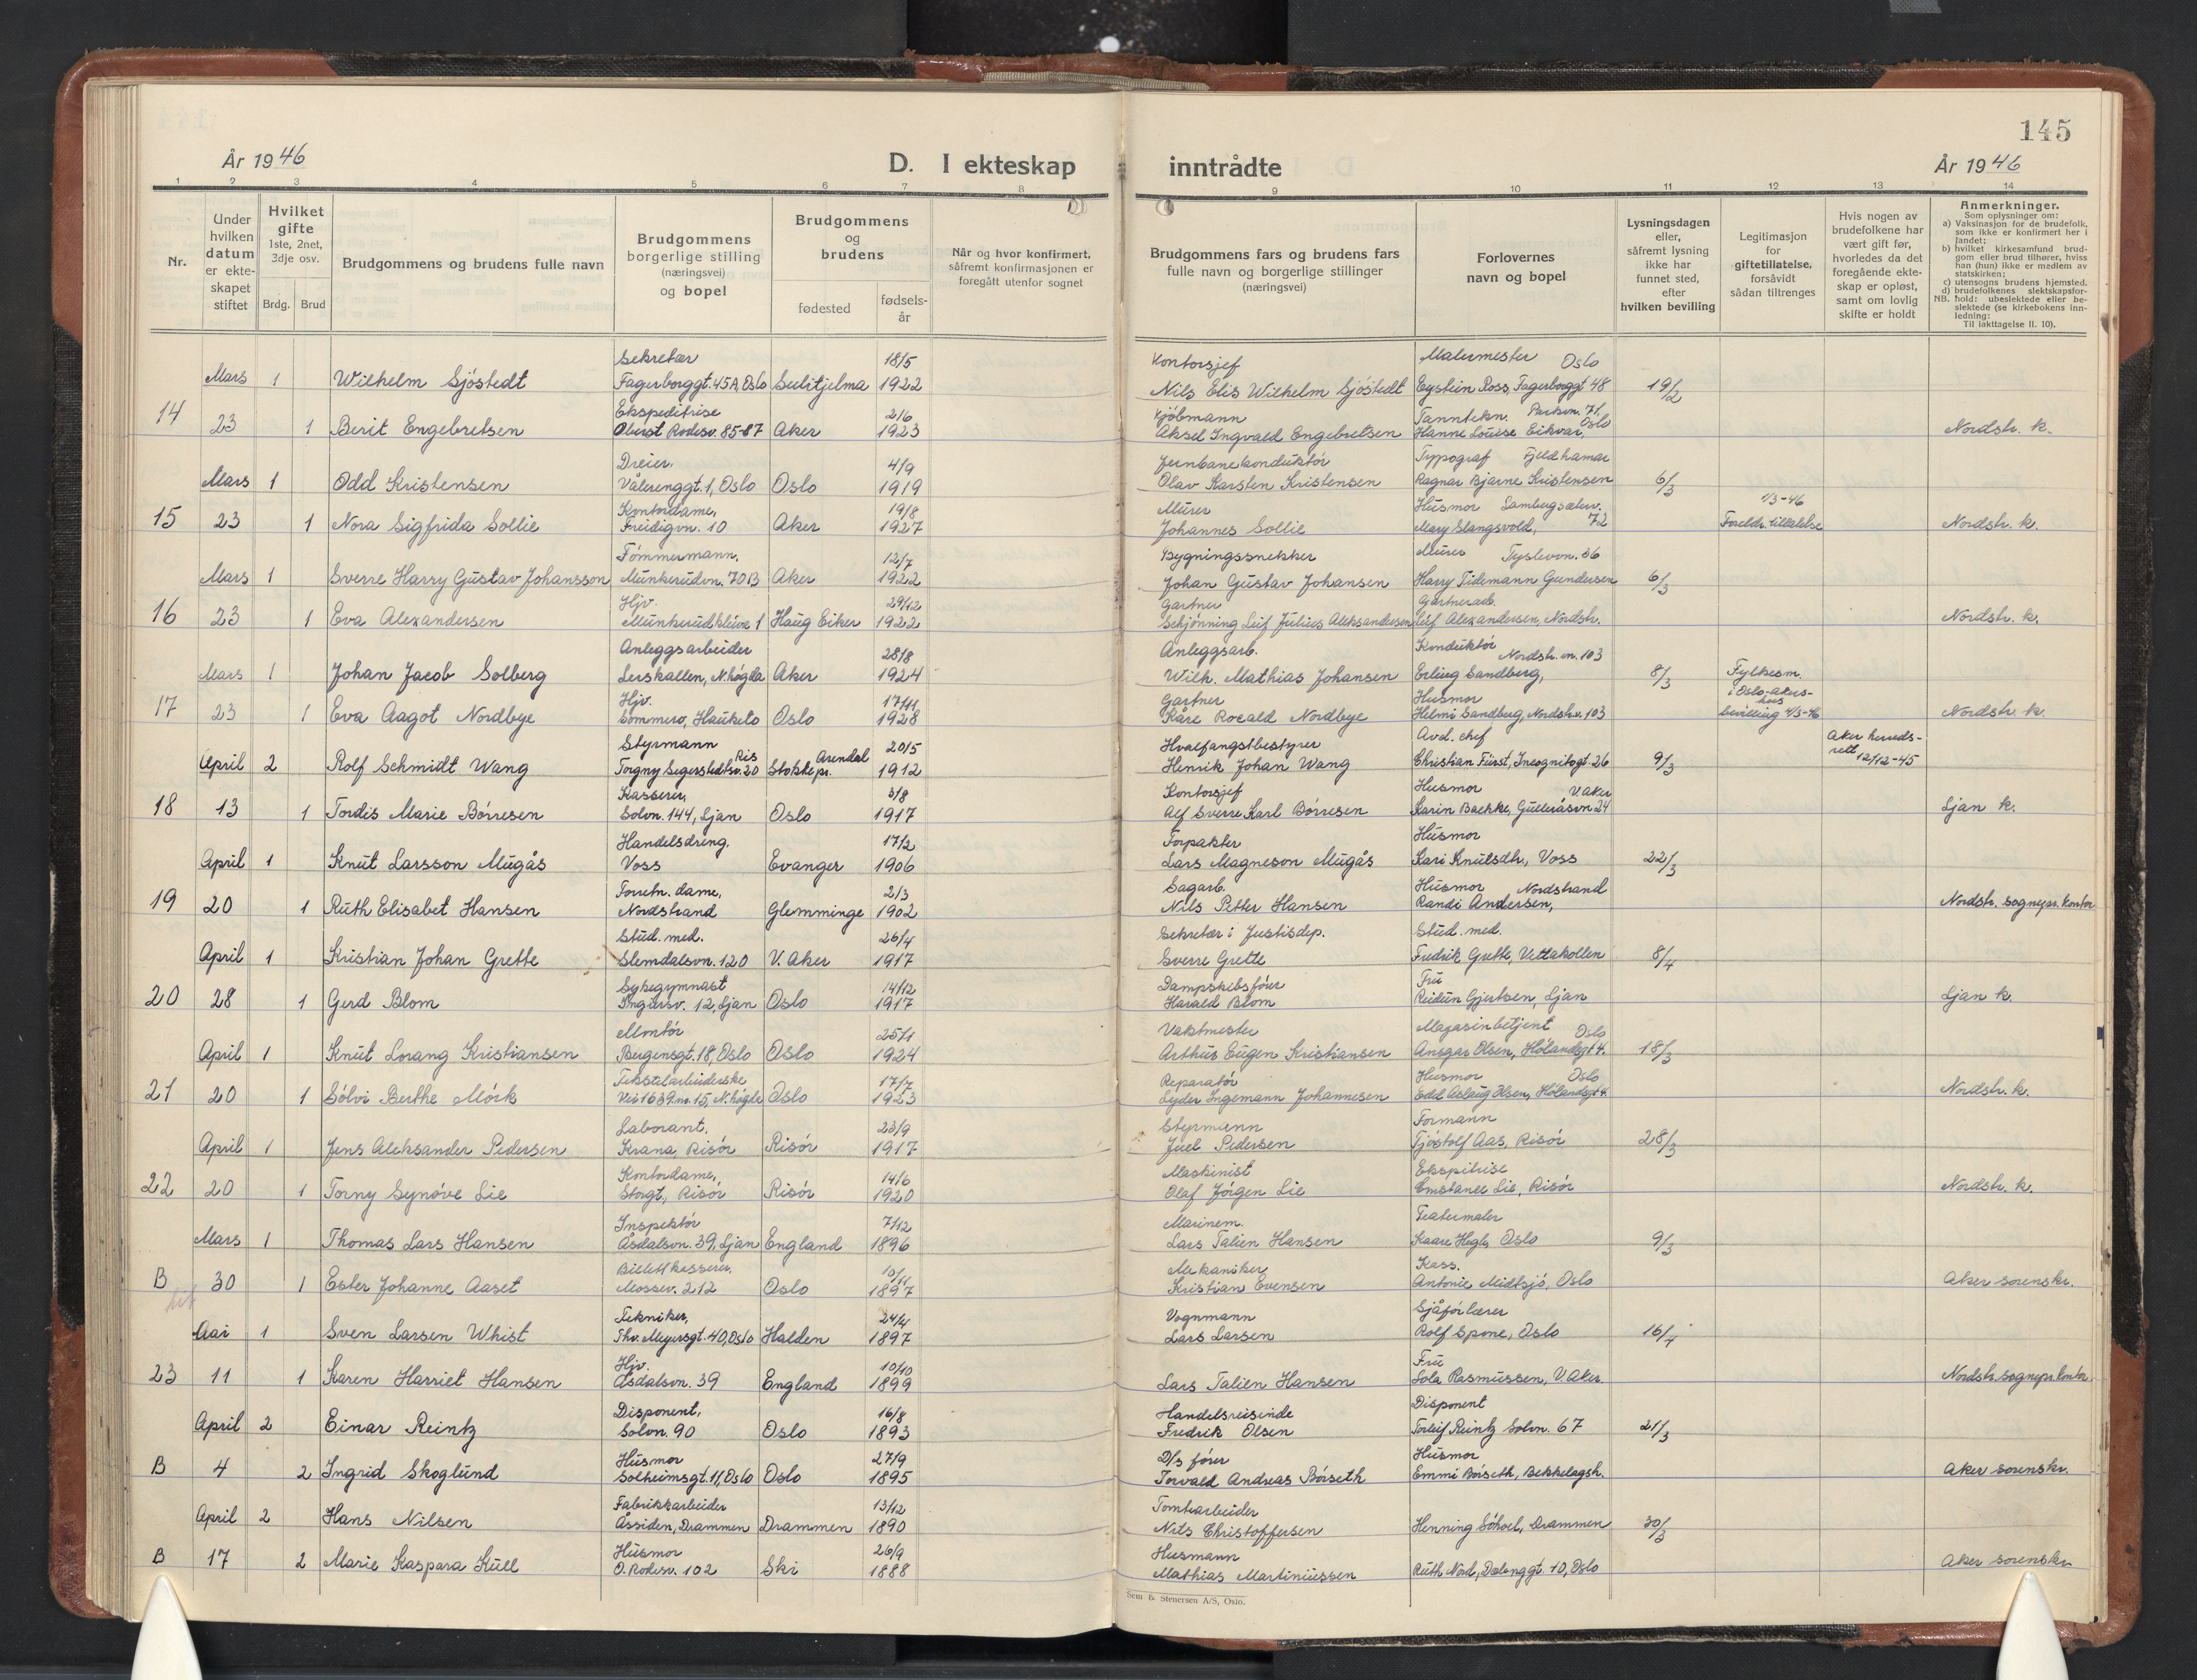 145
År 1946
D. I ekteskap inntrådte
År 1946
1 2 3 4 5 6 7 8 9 10 11 12 13 14
Nr.
Under hvilken datum er ekteskapet stiftet
Hvilket gifte 1ste, 2net, 3dje osv.
Brdg. Brud
Brudgommens og brudens fulle navn
Brudgommens borgerlige stilling (næringsvei) og bopel
Brudgommens og brudens
fødested
fødselsår
Når og hvor konfirmert, såfremt konfirmasjonen er foregått utenfor sognet
Brudgommens fars og brudens fars fulle navn og borgerlige stillinger (næringsvei)
Forlovernes navn og bopel
Lysningsdagen eller, såfremt lysning ikke har funnet sted, efter hvilken bevilling
Legitimasjon for giftetillatelse, forsåvidt sådan tiltrenges
Hvis nogen av brudefolkene har vært gift før, hvorledes da det foregående ekteskap er opløst, samt om lovlig skifte er holdt
Anmerkninger.
Som oplysninger om:
a) Vaksinasjon for de brudefolk, som ikke er konfirmert her i landet;
b) hvilket kirkesamfund brudgom eller brud tilhører, hviss han (hun) ikke er medlem av statskirken;
c) utensogns brudens hjemsted.
d) brudefolkenes slektskapsforhold: ubeslektede eller beslektede (se kirkebokens innledning:
NB.
Til iakttagelse II. 10).
Sekretær 18/5 Kontorsjef Malermester Oslo
Mars 1 Wilhelm Sjøstedt Fagerborggt. 45A, Oslo Sulitjelma 1922 Nils Elis Wilhelm Sjøstedt Eystein Ross, Fagerborggt 48 19/2
Ekspeditrise 2/6 Kjøbmann Tanntekn. Parkvn. 71,
14 23 1 Berit Engebretsen Oberst Rodesv. 85-87 Aker 1923 Aksel Ingvald Engebretsen Hanne Louise Eikvar, Oslo Nordstr. k.
Dreier. 4/9 Jernbanekonduktør Typograf Fjeldhamar
Mars 1 Odd Kristensen Vålerenggt. 1, Oslo Oslo 1919 Olav Karsten Kristensen Ragnar Bjarne Kristensen 6/3
Kontordame, 19/8 Murer Husmor Lambergsæterv. 1/3-46
15 23 1 Nora Sigfrida Sollie Freidigvn. 10 Aker 1927 Johannes Sollie Mary Slangsvold, 72 Foreldr. tillatelse Nordstr. k.
Tømmermann. 12/7 Bygningssnekker Murer Tyslevvn. 36
Mars 1 Sverre Harry Gustav Johansson Munkerudvn. 70B Aker 1922 Johan Gustav Johansen Harry Tidemann Gundersen 6/3
Hjv. 29/12 Gartner Gartnerarb.
16 23 1 Eva Alexandersen Munkerudkleiva 1 Haug Eiker 1922 Schjønning Leif Julius Aleksandersen Leif Alexandersen, Nordstr. Nordstr. k.
Anleggsarbeider 28/8 Anleggsarb. Konduktør Nordstr. vn. 103
Mars 1 Johan Jacob Solberg Lerskallen, N.høgda Aker 1924 Wilh. Mathias Johansen Erling Sandberg, 8/3 Fylkesm.
Hjv. 17/11 Gartner Husmor i Oslo-Akershus
17 23 1 Eva Aagot Nordbye Sommero, Hauketo Oslo 1928 Kåre Roeald Nordbye Helmi Sandberg, Nordstr.v. 103 bevilling 4/3-46 Nordstr. k.
Styrmann Ris 20/5 Arendal Hvalfangstbestyrer Avd. chef Aker herreds-
April 2 Rolf Schmidt Wang Torgny Segerstedtsv. 20 Stokke pr. 1912 Henrik Johan Wang Christian Fürst, Incognitogt. 26 9/3 rett 12/12-45
Kasserer, 3/8 Kontorsjef Husmor V. Aker
18 13 1 Tordis Marie Børresen Solvn. 144, Ljan Oslo 1917 Alf Sverre Karl Børresen Karin Bache, Gulleråsvn 24 Ljan k.
Handelsdreng. 17/2 Forpakter Husmor
April 1 Knut Larsson Mugås Voss Evanger 1906 Lars Magneson Mugås Kari Knutsdtr., Voss 22/3
Forretn. dame, 2/3 Sagarb. Husmor Nordstrand
19 20 1 Ruth Elisabet Hansen Nordstrand Glemminge 1902 Nils Petter Hansen Randi Andersen, Nordstr. sognepr. kontor
Stud. med. 26/4 Sekretær i Justisdep. Stud. med.
April 1 Kristian Johan Grette Slemdalsvn. 120 V. Aker 1917 Sverre Grette Fredrik Grette, Vettakollen 8/4
Sykegymnast 14/12 Dampskibsfører Fru
20 28 1 Gerd Blom Ingiersv. 12, Ljan Oslo 1917 Harald Blom Reidun Gjertsen, Ljan Ljan k.
Montør 25/1 Vaktmester Magasinbetjent Oslo
April 1 Knut Lorang Kristiansen Bergensgt. 18, Oslo Oslo 1924 Arthur Eugen Kristiansen Ansgar Olsen, Hølandsgt 4. 18/3
Tekstilarbeiderske 17/7 Reparatør Husmor Oslo
21 20 1 Sølvi Berthe Mørk Vei 1639. nr. 15, N.høgda Oslo 1923 Lyder Ingemann Johannesen Edd Aslaug Olsen, Hølandsgt 4. Nordstr. k.
Laborant. 23/9 Styrmann Formann
April 1 Jens Aleksander Pedersen Krana, Risør Risør 1917 Juel Pedersen Tjøstolf Aas, Risør 28/3
Kontordame, 14/6 Maskinist Ekspitrise
22 20 1 Torny Synøve Lie Storgt., Risør Risør 1920 Olaf Jørgen Lie Constance Lie, Risør Nordstr. k.
Inspektør 7/12 Marinem. Teatermaler
Mars 1 Thomas Lars Hansen Åsdalsvn. 39, Ljan England 1896 Lars Talien Hansen Kaare Hegle, Oslo 9/3
Billettkasserer. 10/11 Mekaniker Kass.
B 30 1 Ester Johanne Aaset Mossev. 212 Oslo 1897 Kristian Evensen Antonie Midtsjø, Oslo Aker sorenskr.
Tekniker, 24/4 Vognmann Sjåførlærer
Mai 1 Sven Larsen Whist Thv. Meyersgt. 40, Oslo Halden 1897 Lars Larsen Rolf Spone, Oslo 16/4
Hjv. 10/10 Fru
23 11 1 Karen Harriet Hansen Åsdalsvn. 39 England 1899 Lars Talien Hansen Lola Rasmussen, V. Aker. Nordstr. sognepr. kontor
Disponent, 16/8 Handelsreisende Disponent
April 2 Einar Reintz Solvn. 90 Oslo 1893 Fredrik Olsen Torleif Reintz Solvn. 67 21/3
Husmor 27/9 D/s fører Husmor
B 4 2 Ingrid Skoglund Solheimsgt. 11, Oslo Oslo 1895 Torvald Andreas Børseth Emmi Børseth, Bekkelagsh. Aker sorenskr.
Fabrikkarbeider 13/12 Tomtearbeider
April 2 Hans Nilsen Åssiden, Drammen Drammen 1890 Nils Christoffersen Henning Søhoel, Drammen 30/3
Husmor 26/9 Husmann
B 17 2 Marie Kaspara Kull O. Rodesv. 102 Ski 1888 Mathias Martiniussen Ruth Nord, Dælenggt. 10, Oslo Aker sorenskr
Sem & Stenersen A/S, Oslo.